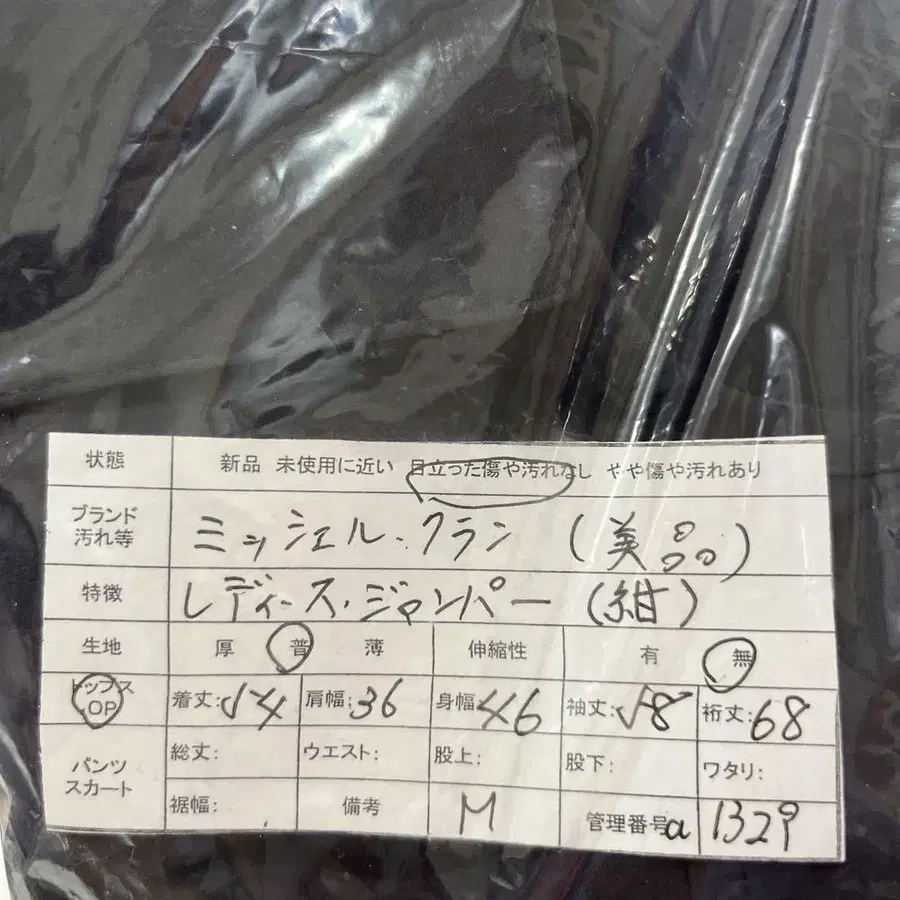 状態 新品 未使用に近い 目立った傷や汚れなし やや傷や汚れあり
ブランド 汚れ等 ミッシェル・クラン (美品)
特徴 レディース・ジャンパー (紺)
生地 厚 普 薄 伸縮性 有 無
トップス OP 着丈:54 肩幅:36 身幅:46 袖丈:58 裄丈:68
パンツ スカート 総丈: ウエスト: 股上: 股下: ワタリ:
裾幅: 備考 M 管理番号a 1329